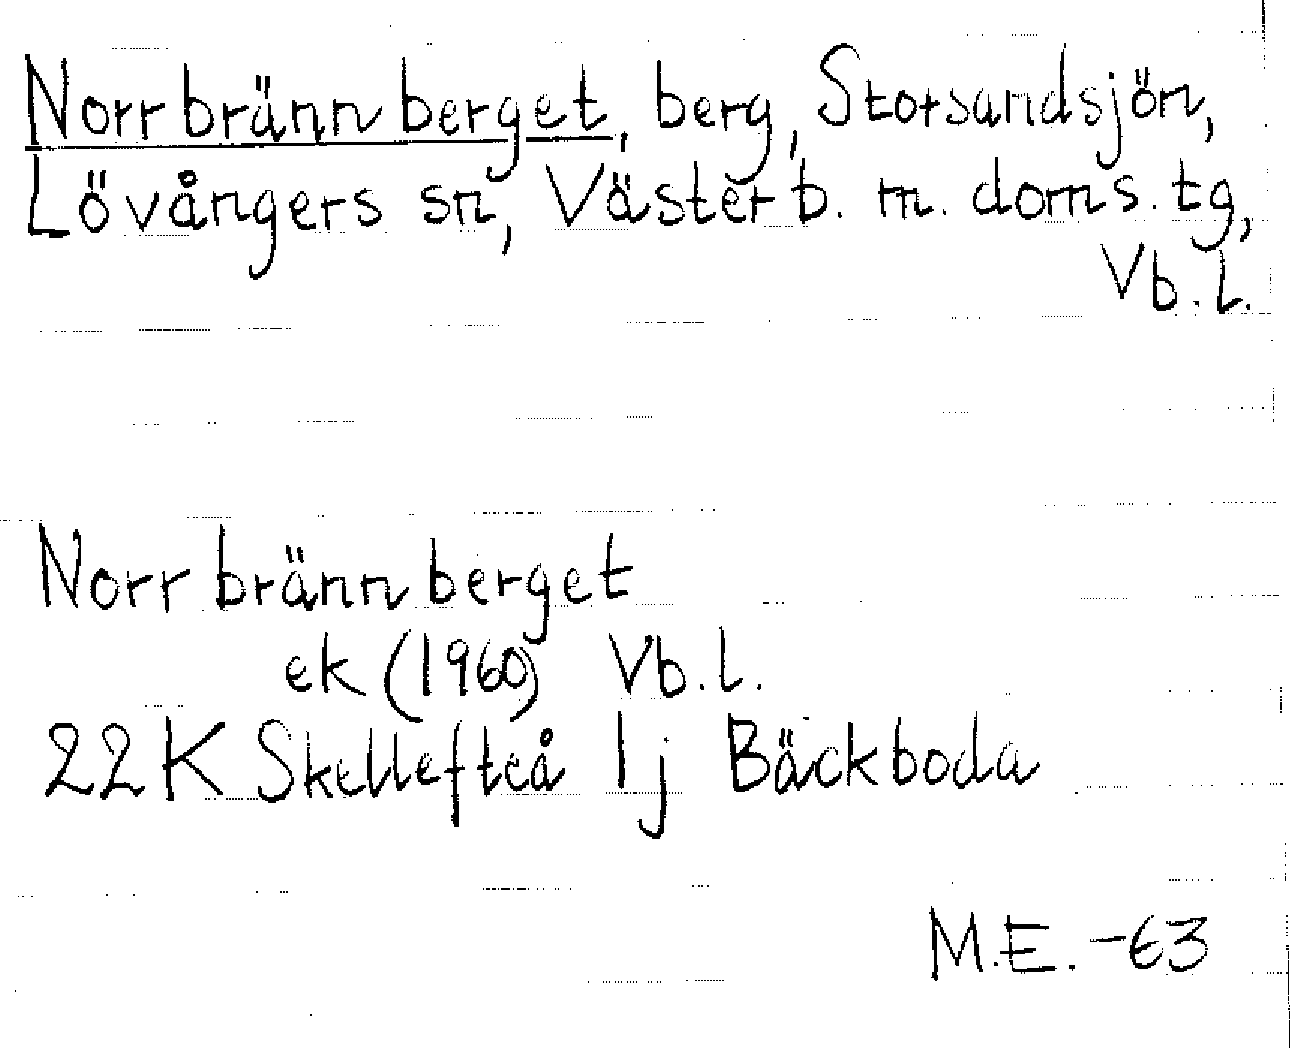 Norrbrännberget, berg, Storsandsjön,
Lövångers sn, Västerb. m. doms. tg,
Vb. l.
Norrbrännberget
ek (1960) Vb. l.
22K Skellefteå 1j Bäckboda
M.E. -63